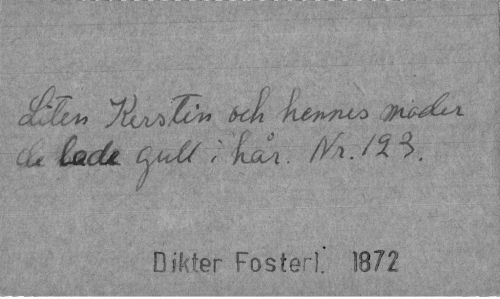 Liten Kerstin och hennes moder
de lade gull i hår. Nr. 123.
Dikter Fosterl. 1872